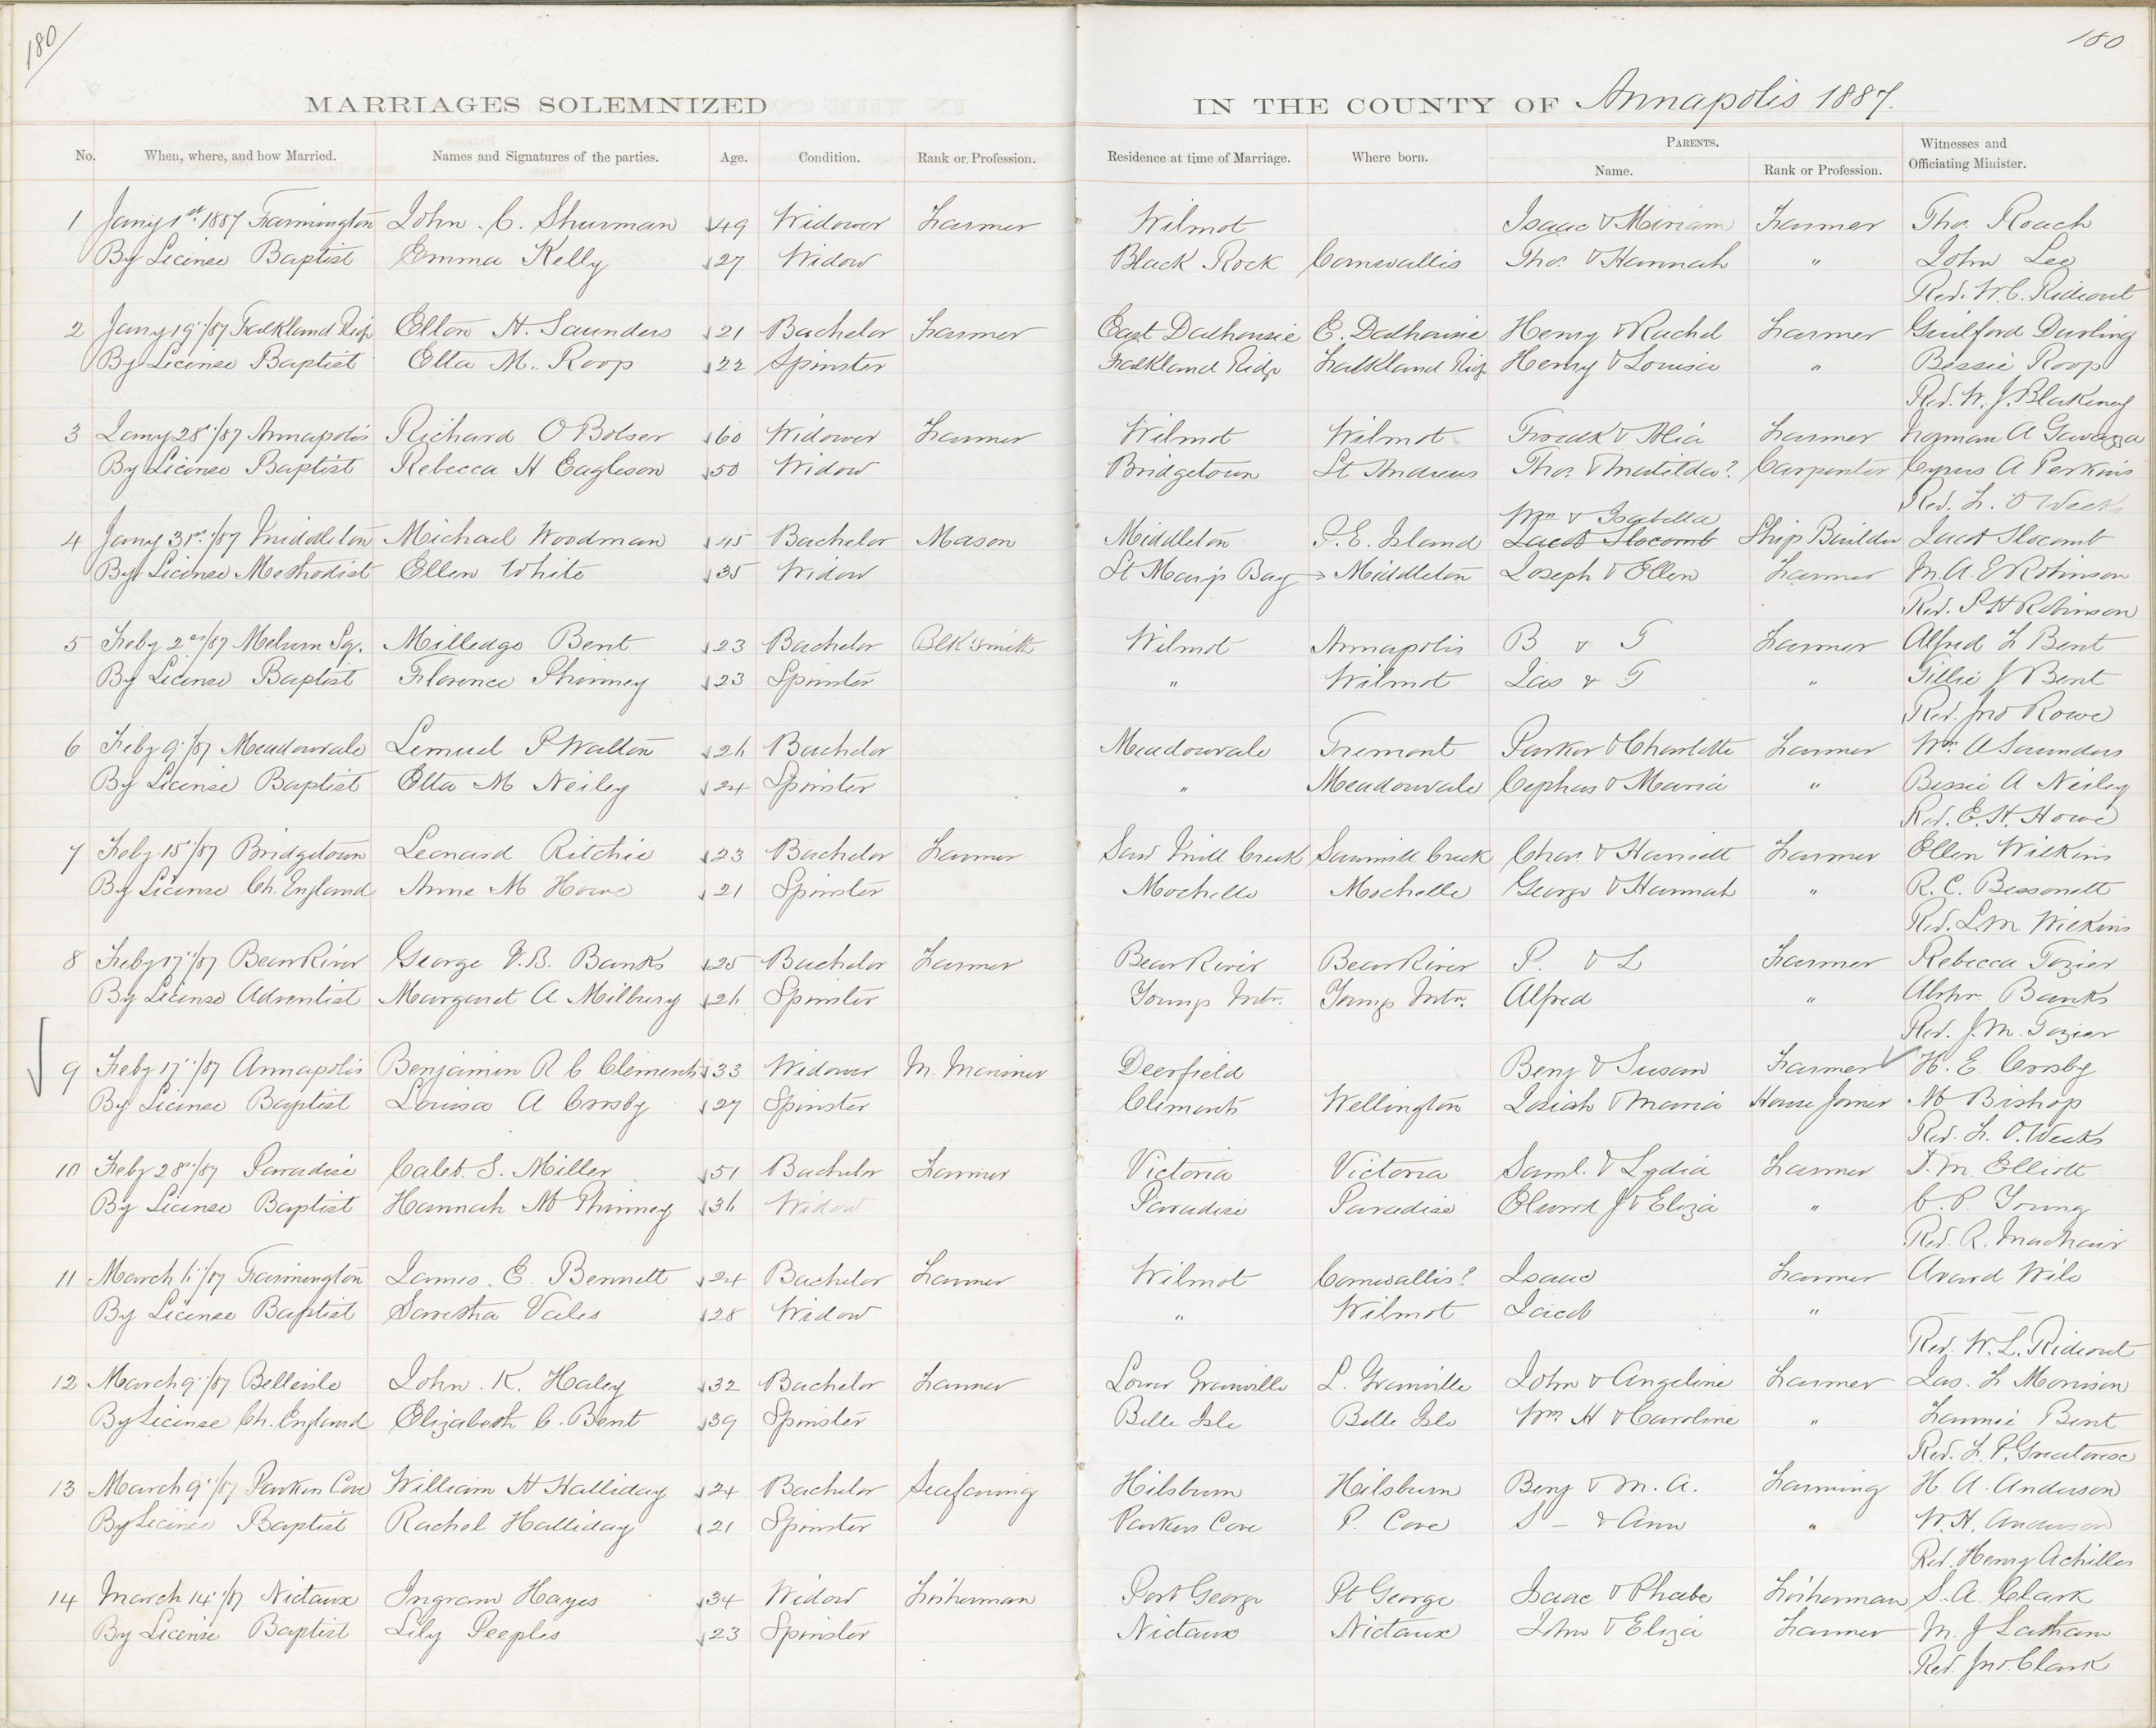 180
180
MARRIAGES SOLEMNIZED IN THE COUNTY OF Annapolis 1887.
No. When, where, and how Married. Names and Signatures of the parties. Age. Condition. Rank or Profession. Residence at time of Marriage. Where born. PARENTS. Name. Rank or Profession. Witnesses and Officiating Minister.
1 Jany 1st 1887 Farmington John. C. Shurman 49 Widower Farmer Wilmot Isaac & Miriam Farmer Thos. Roach
By License Baptist Emma Kelly 27 Widow Black Rock Cornwallis Thos. & Hannah " John Lee
Rev. W. C. Rideout
2 Jany 19th/87 Falkland Ridge Elton H. Saunders 21 Bachelor Farmer East Dalhousie E. Dalhousie Henry & Rachel Farmer Guilford Durling
By License Baptist Etta M. Roop 22 Spinster Falkland Ridge Falkland Ridge Henry & Louisa " Bessie Roop
Rev. W. J. Blakeney
3 Jany 28th/87 Annapolis Richard O Bolser 60 Widower Farmer Wilmot Wilmot & Farmer Norman A
By License Baptist Rebecca H Eagleson 50 Widow Bridgetown St Andrews Thos. & Matilda? Carpenter Cyrus A Perkins
Rev. F. O Weeks
Wm & Isabella
4 Jany 31st/87 Middleton Michael Woodman 45 Bachelor Mason Middleton P. E. Island Jacob Slocomb Ship Builder Jacob Slocomb
By License Methodist Ellen White 35 Widow St Marys Bay Middleton Joseph & Ellen Farmer M. A. E Robinson
Rev. S H Robinson
5 Feby 2nd/87 Melvern Sq. Milledge Bent 23 Bachelor Blk Smith Wilmot Annapolis B & T Farmer Alfred F Bent
By License Baptist Florence Phinney 23 Spinster " Wilmot Jas & T " Tillie J Bent
Rev. Jno Rowe
6 Feby 9th/87 Meadowvale Lemuel P Walton 26 Bachelor Meadowvale Tremont Parker & Charlotte Farmer Wm A Saunders
By License Baptist Etta M Neiley 24 Spinster " Meadowvale Cephas & Maria " Bessie A Neiley
Rev. E. H. Howe
7 Feby 15th/87 Bridgetown Leonard Ritchie 23 Bachelor Farmer Saw Mill Creek Sawmill Creek Chas. & Harriett Farmer Ellen Wilkins
By License Ch. England Anne M Howe 21 Spinster Mochelle Mochelle George & Hannah " R. C. Bessonett
Rev. L. M. Wilkins
8 Feby 17th/87 Bear River George V. B. Banks 25 Bachelor Farmer Bear River Bear River P. & L Farmer Rebecca Tozier
By License Adventist Margaret A Milbury 26 Spinster Youngs Mtn. Youngs Mtn. Alfred " Banks
Rev. J. M. Tozier
9 Feby 17th/87 Annapolis Benjamin R C Clements 33 Widower M. Mariner Deerfield Benj & Susan Farmer H. E. Crosby
By License Baptist Louisa A Crosby 27 Spinster Clements Wellington Josiah & Maria House Joiner M Bishop
Rev. F. O. Weeks
10 Feby 28th/87 Paradise Caleb. S. Miller 51 Bachelor Farmer Victoria Victoria Saml. & Lydia Farmer J. M. Elliott
By License Baptist Hannah M Phinney 36 Widow Paradise Paradise J & Eliza " C. P. Young
Rev. R.
11 March 6th/87 Farmington James. E. Bennett 24 Bachelor Farmer Wilmot Cornwallis? Isaac Farmer Avard
By License Baptist Vales 28 Widow " Wilmot Jacob "
Rev. W. L. Rideout
12 March 9th/87 Belleisle John. K. Haley 32 Bachelor Farmer Lower Granville L. Granville John & Angeline Farmer Jas. F Morrison
By License Ch. England Elizabeth C. Bent 39 Spinster Belle Isle Belle Isle Wm H & Caroline " Fannie Bent
Rev. F. P. Greatorex
13 March 9th/87 Parkers Cove William H Halliday 24 Bachelor Seafaring Hilsburn Hilsburn Benj & M. A. Farming H. A. Anderson
By License Baptist Rachel Halliday 21 Spinster Parkers Cove P. Cove S — & Ann " W. H. Anderson
Rev. Henry Achilles
14 March 14th/87 Nictaux Ingram Hayes 34 Widow Fisherman Port George Pt George Isaac & Phebe Fisherman S. A. Clark
By License Baptist Lily Peeples 23 Spinster Nictaux Nictaux John & Eliza Farmer M. J Latham
Rev. Jno. Clark